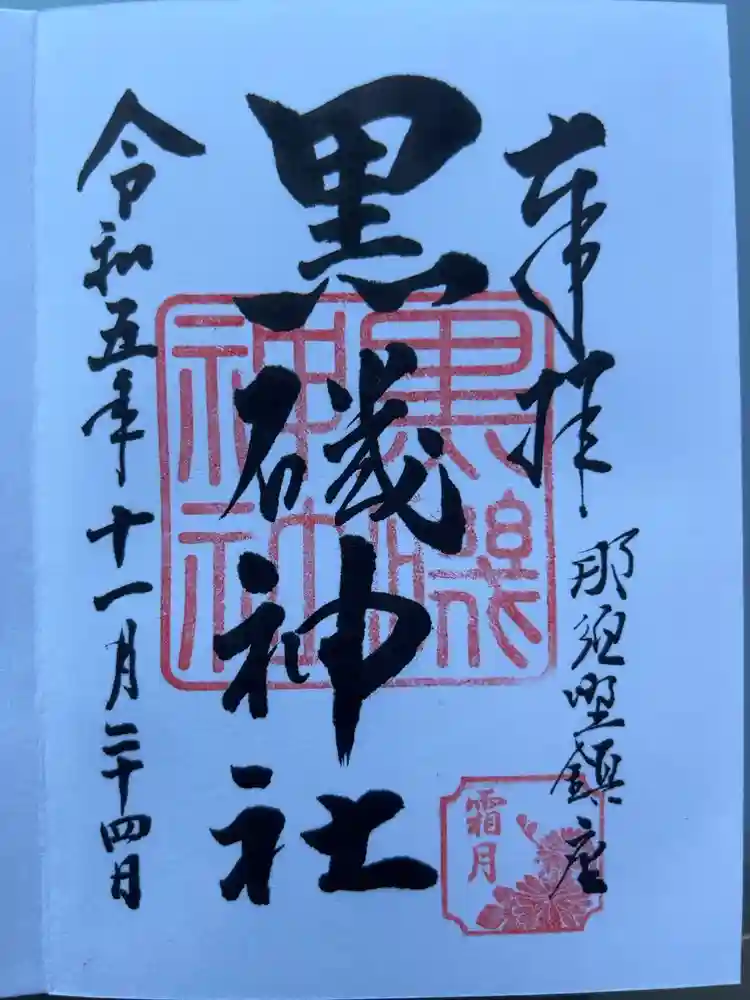 奉拝
那須野鎮座
黒磯神社
令和五年十一月二十四日
黒磯
神社
霜月